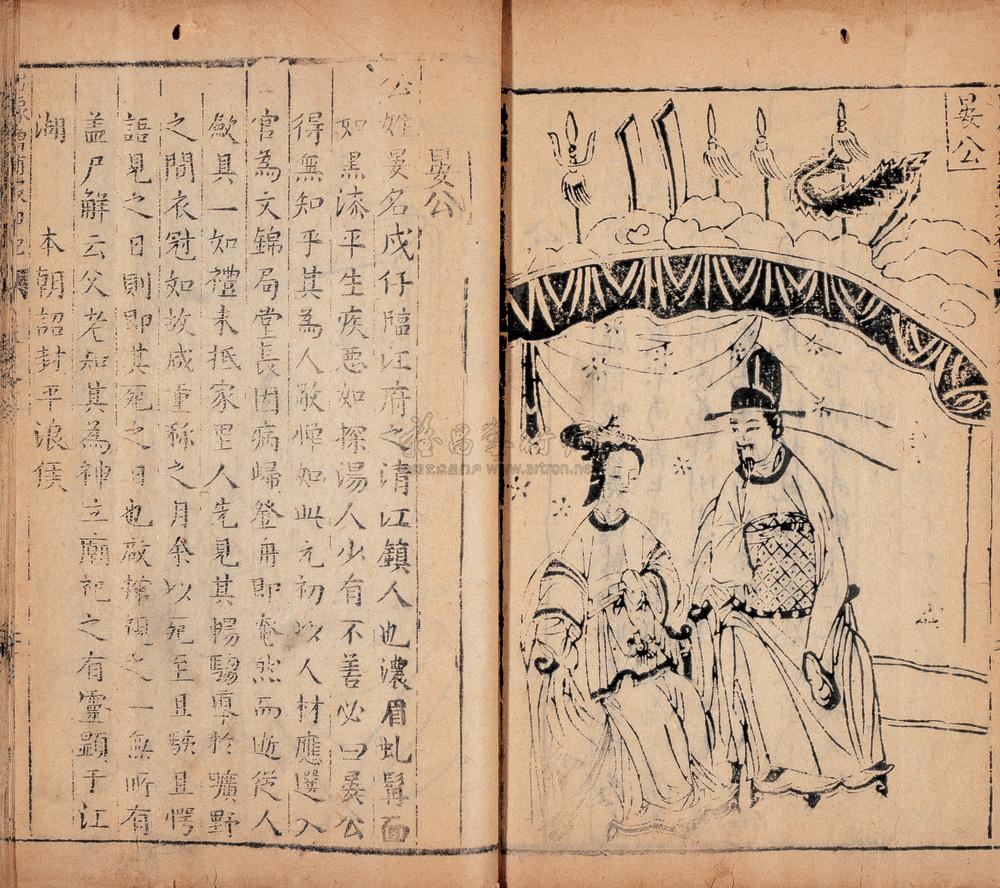 晏公
晏公
公姓晏名戍仔臨江府之清江鎮人也濃眉虬髯面
如黑漆平生疾惡如探湯人少有不善必曰晏公
得無知乎其為人敬憚如此元初以人材應選入
官為文錦局堂長因病歸登舟即奄然而逝從人
歛具一如禮未抵家里人先見其暢騶導於曠野
之間衣冠如故咸重稱之月餘以死至且駭且愕
語見之日則即其死之日也啟棺視之一無所有
盖尸解云父老知其為神立廟祀之有靈顯于江
湖 本朝詔封平浪侯
www.artron.net